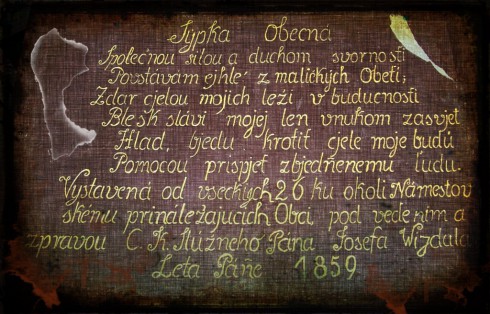 Sýpka Obecná
Společnou silou a duchom svornosti
Povstávám ejhlé z malických Obetí;
Zdar cjelou mojich leží v buducnosti
Blesk slávi mojej len vnukom zasvjet
Hlad, bjedu krotiť cjele moje budú
Pomocou prispjeť zbjedñenemu ludu.
Vystavená od vseckých 26 ku okolí Námestov
skému prináležajucich Obcí, pod vedením a
zpravou C. K. Služneho Pána Josefa Wizdala
Leta Páñe 1859